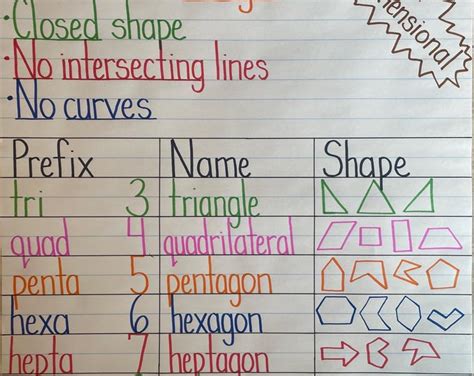 ·Closed shape
·No intersecting lines
·No curves
Prefix Name Shape
tri 3 triangle
quad 4 quadrilateral
penta 5 pentagon
hexa 6 hexagon
hepta 7 heptagon